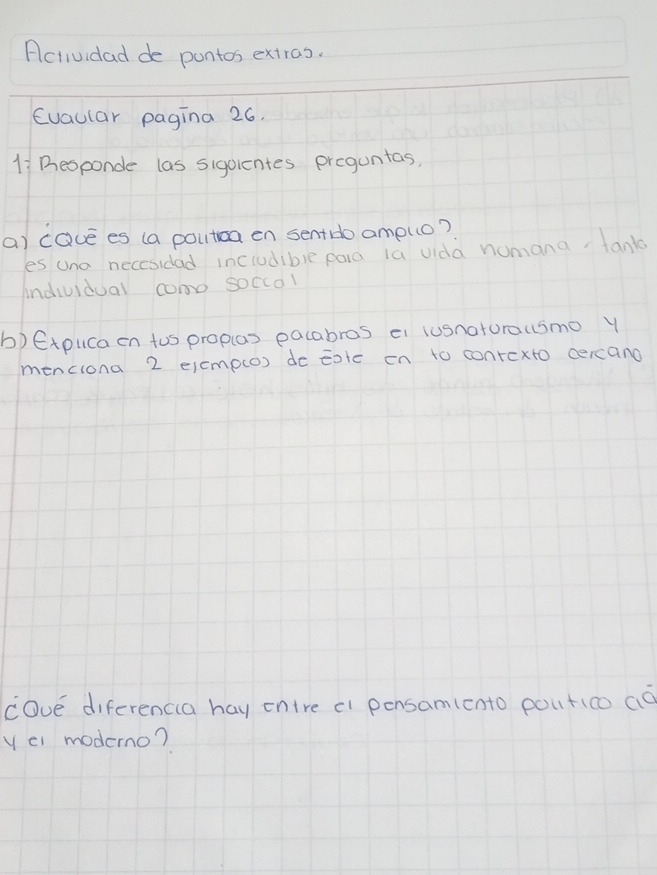 Actividad de puntos extras.
Evaular pagina 26.
1: Responde las siguientes preguntas.
a) ¿Qué es la politica en sentido amplio?
es una necesidad includible para la vida humana, tanto
individual como social
b) Explica en tus propias palabras el iusnaturalismo y
menciona 2 ejemplos de este en tu contexto cercano
¿Qué diferencia hay entre el pensamiento politico
y el moderno?